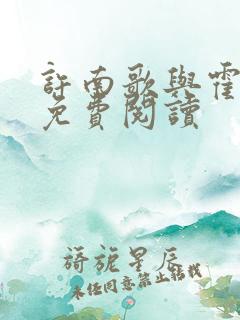 許南歌與霍
免費閱讀
旖旎星辰
未经同意禁止转载